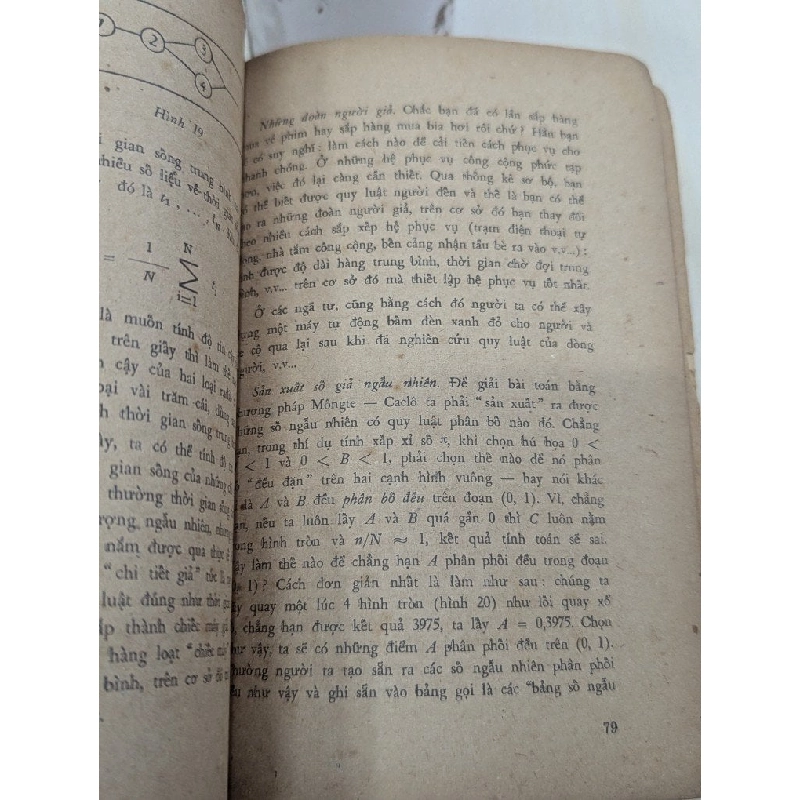 1
2
3
4
Hình 19
gian sống trung bình
nhiều số liệu về thời gian
đó là t₁, ..., tₙ.
= 1/N N∑i=1 tᵢ
là muốn tính độ tin
trên giấy thì làm
cậy của hai loại
vài trăm cái,
thời gian sống trung
ta có thể tính độ
gian sống của những
thường thời gian sống
ngẫu nhiên, nhưng
nắm được qua thực
“chi tiết giả” tức là
luật đúng như thời gian
thành chiếc máy giả
hàng loạt “chiếc máy
bình, trên cơ sở đó
Những đoàn người giả. Chắc bạn đã có lần sắp hàng
vé phim hay sắp hàng mua bia hơi rồi chứ? Hẳn bạn
có suy nghĩ: làm cách nào để cải tiến cách phục vụ cho
nhanh chóng. Ở những hệ phục vụ công cộng phức tạp
việc đó lại càng cần thiết. Qua thống kê sơ bộ, bạn
thể biết được quy luật người đến và thế là bạn có thể
ra những đoàn người giả, trên cơ sở đó bạn thay đổi
nhiều cách sắp xếp hệ phục vụ (trạm điện thoại tự
nhà tắm công cộng, bến cảng nhận tầu bè ra vào v.v...);
được độ dài hàng trung bình, thời gian chờ đợi trung
v.v... trên cơ sở đó mà thiết lập hệ phục vụ tốt nhất.
Ở các ngã tư, cũng bằng cách đó người ta có thể xây
một máy tự động bấm đèn xanh đỏ cho người và
cộ qua lại sau khi đã nghiên cứu quy luật của dòng
người, v.v...
Sản xuất số giả ngẫu nhiên. Để giải bài toán bằng
phương pháp Môngte — Caclô ta phải “sản xuất” ra được
những số ngẫu nhiên có quy luật phân bố nào đó. Chẳng
trong thí dụ tính xấp xỉ số π, khi chọn hú họa 0 <
< 1 và 0 < B < 1, phải chọn thế nào để nó phân
“đều đặn” trên hai cạnh hình vuông — hay nói khác
là A và B đều phân bố đều trên đoạn (0, 1). Vì, chẳng
nếu ta luôn lấy A và B quá gần 0 thì C luôn nằm
hình tròn và n/N ≈ 1, kết quả tính toán sẽ sai.
làm thế nào để chẳng hạn A phân phối đều trong đoạn
1)? Cách đơn giản nhất là làm như sau: chúng ta
quay một lúc 4 hình tròn (hình 20) như lối quay xổ
chẳng hạn được kết quả 3975, ta lấy A = 0,3975. Chọn
như vậy, ta sẽ có những điểm A phân phối đều trên (0, 1).
Thường người ta tạo sẵn ra các số ngẫu nhiên phân phối
như vậy và ghi sẵn vào bảng gọi là các “bảng số ngẫu
79